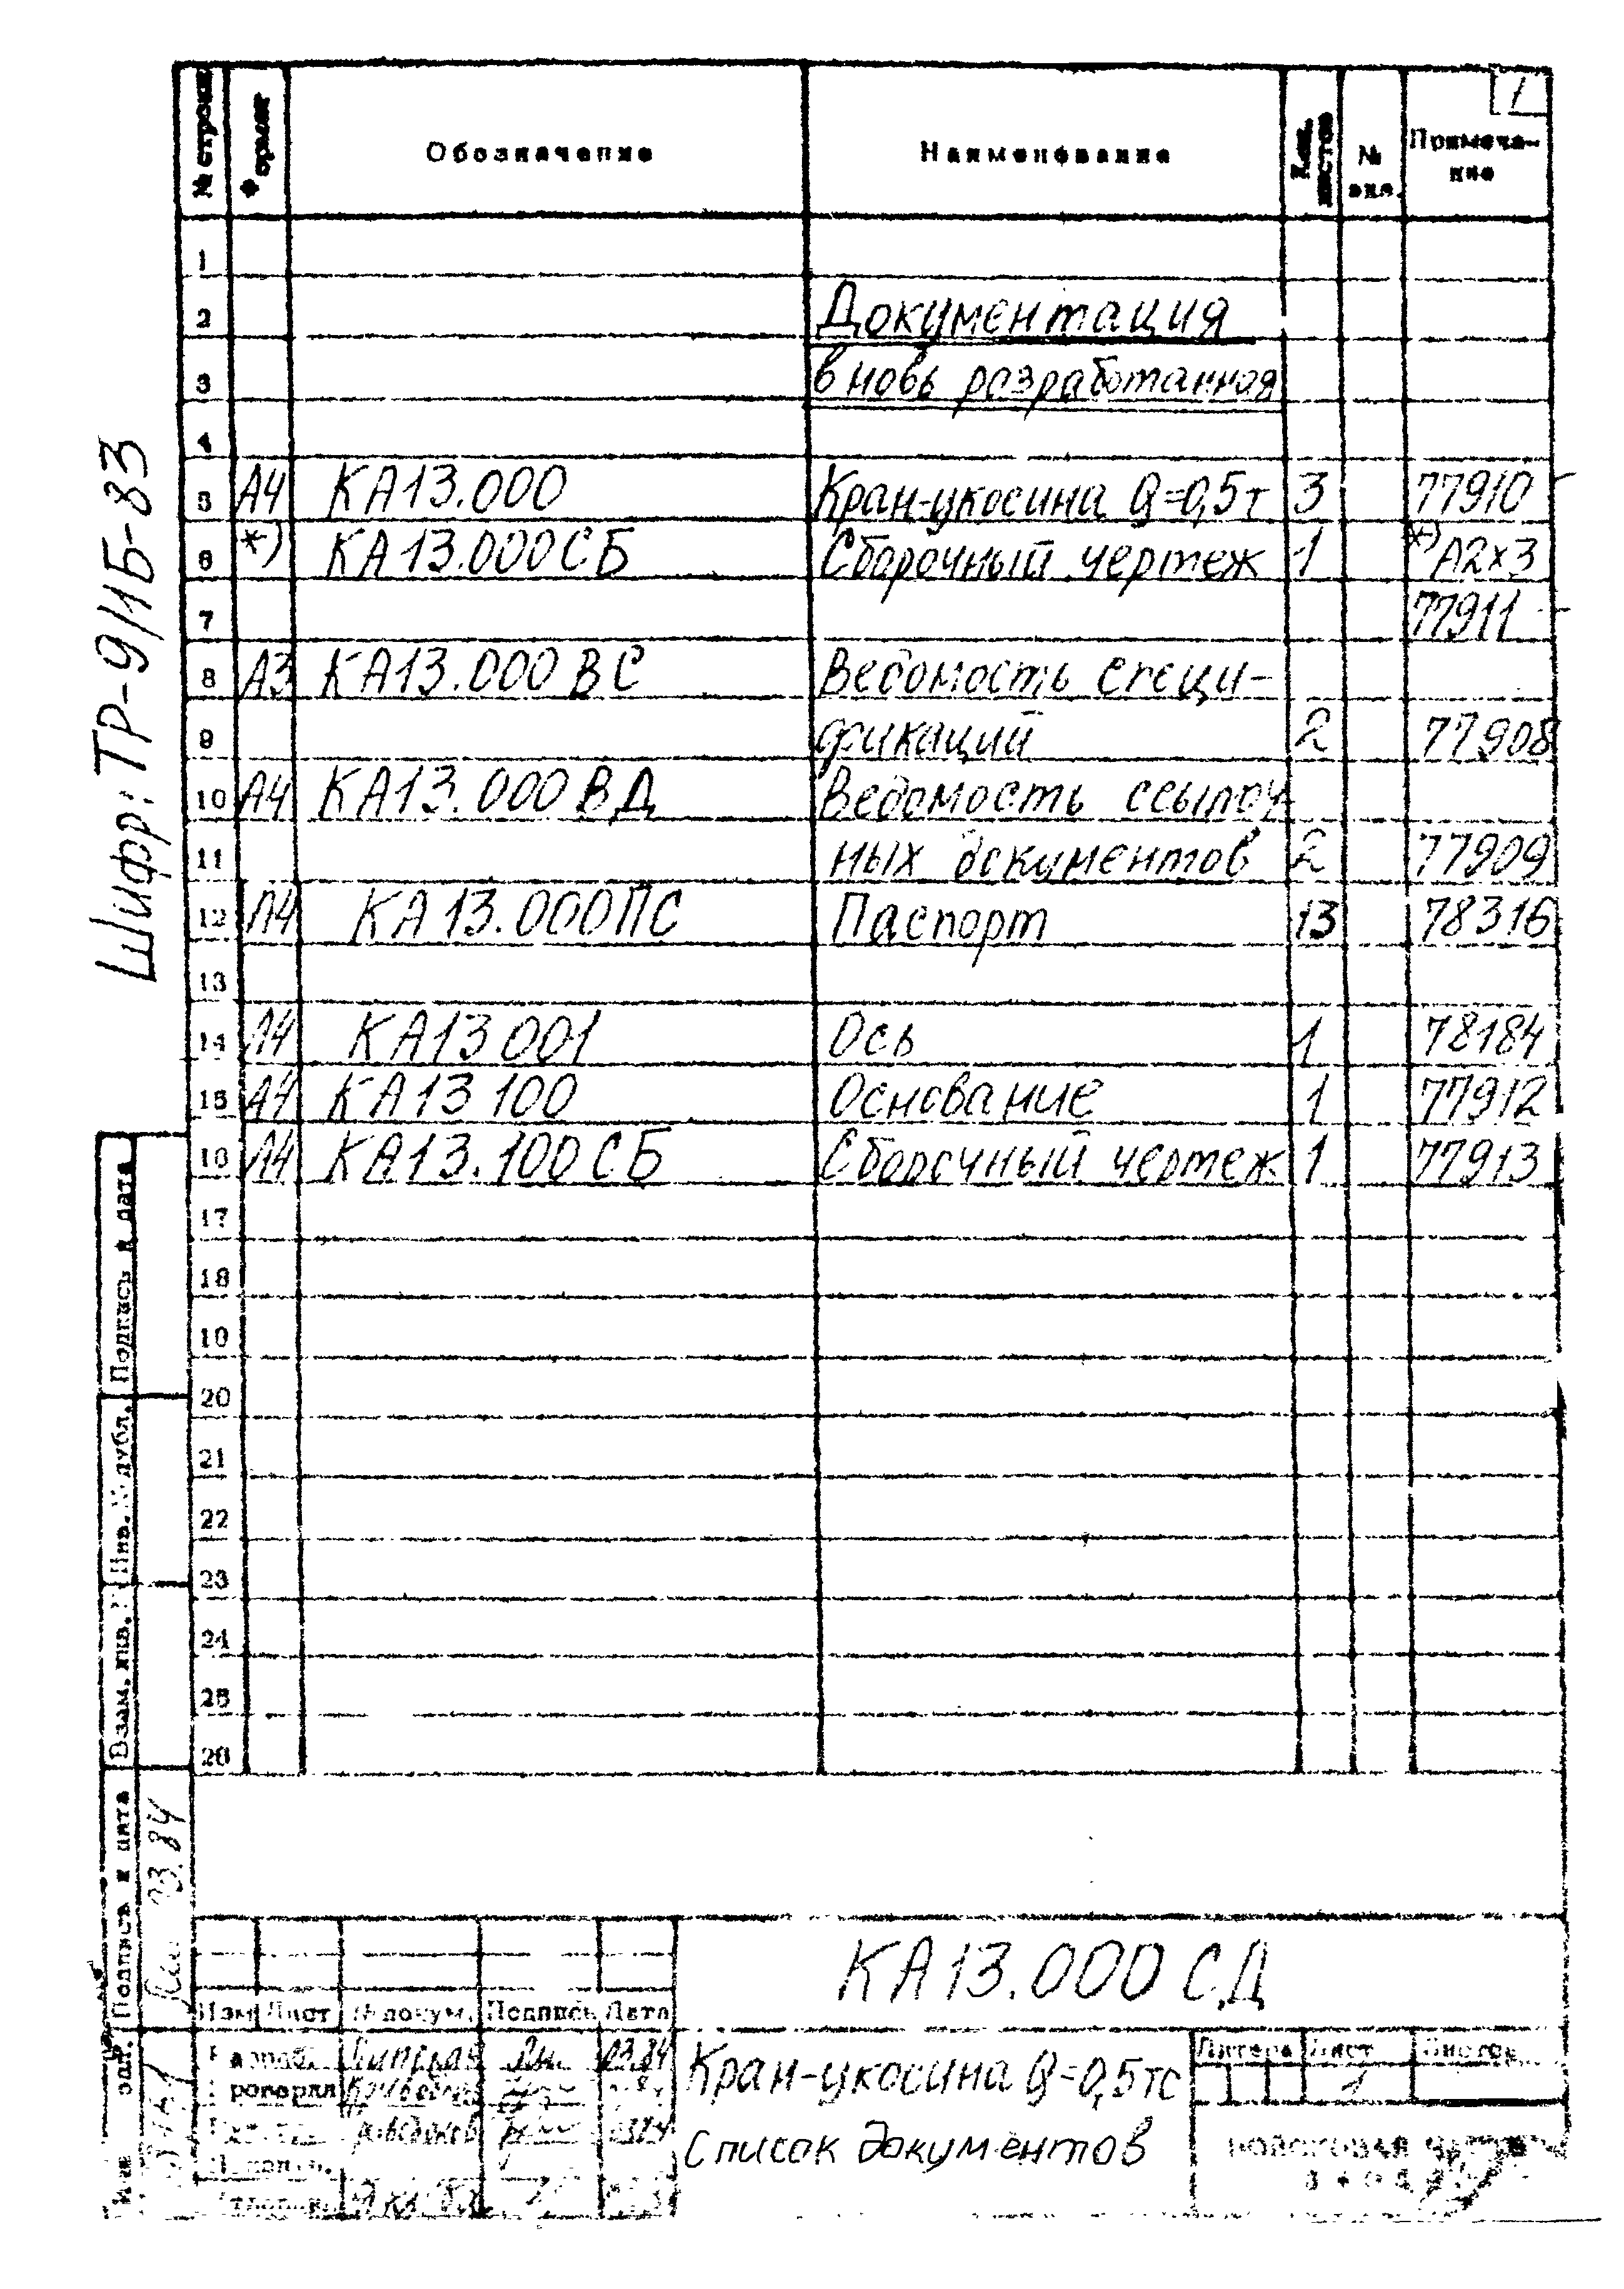 1
№ строки Формат Обозначение Наименование Кол. листов № экз. Примеча-
ние
1
2 Документация
3 вновь разработанная
4
5 А4 КА13.000 Кран-укосина Q=0,5т 3 77910
6 *) КА13.000СБ Сборочный чертеж 1 *) А2х3
7 77911
8 А3 КА13.000 ВС Ведомость специ-
9 фикаций 2 77908
10 А4 КА13.000 ВД Ведомость ссылоч-
11 ных документов 2 77909
12 А4 КА13.000ПС Паспорт 13 78316
13
14 А4 КА13 001 Ось 1 78184
15 А4 КА13 100 Основание 1 77912
16 А4 КА13.100 СБ Сборочный чертеж 1 77913
17
18
19
20
21
22
23
24
25
26
Шифр: ТР-9/1Б-83
Подпись и дата
Инв. № дубл.
Взам. инв. №
Подпись и дата
03.84
КА13.000 СД
Изм Лист № докум. Подпись Дата
Разраб. 03.84
Проверил
Кран-укосина Q=0,5тс
Список документов
Литера Лист Листов
1